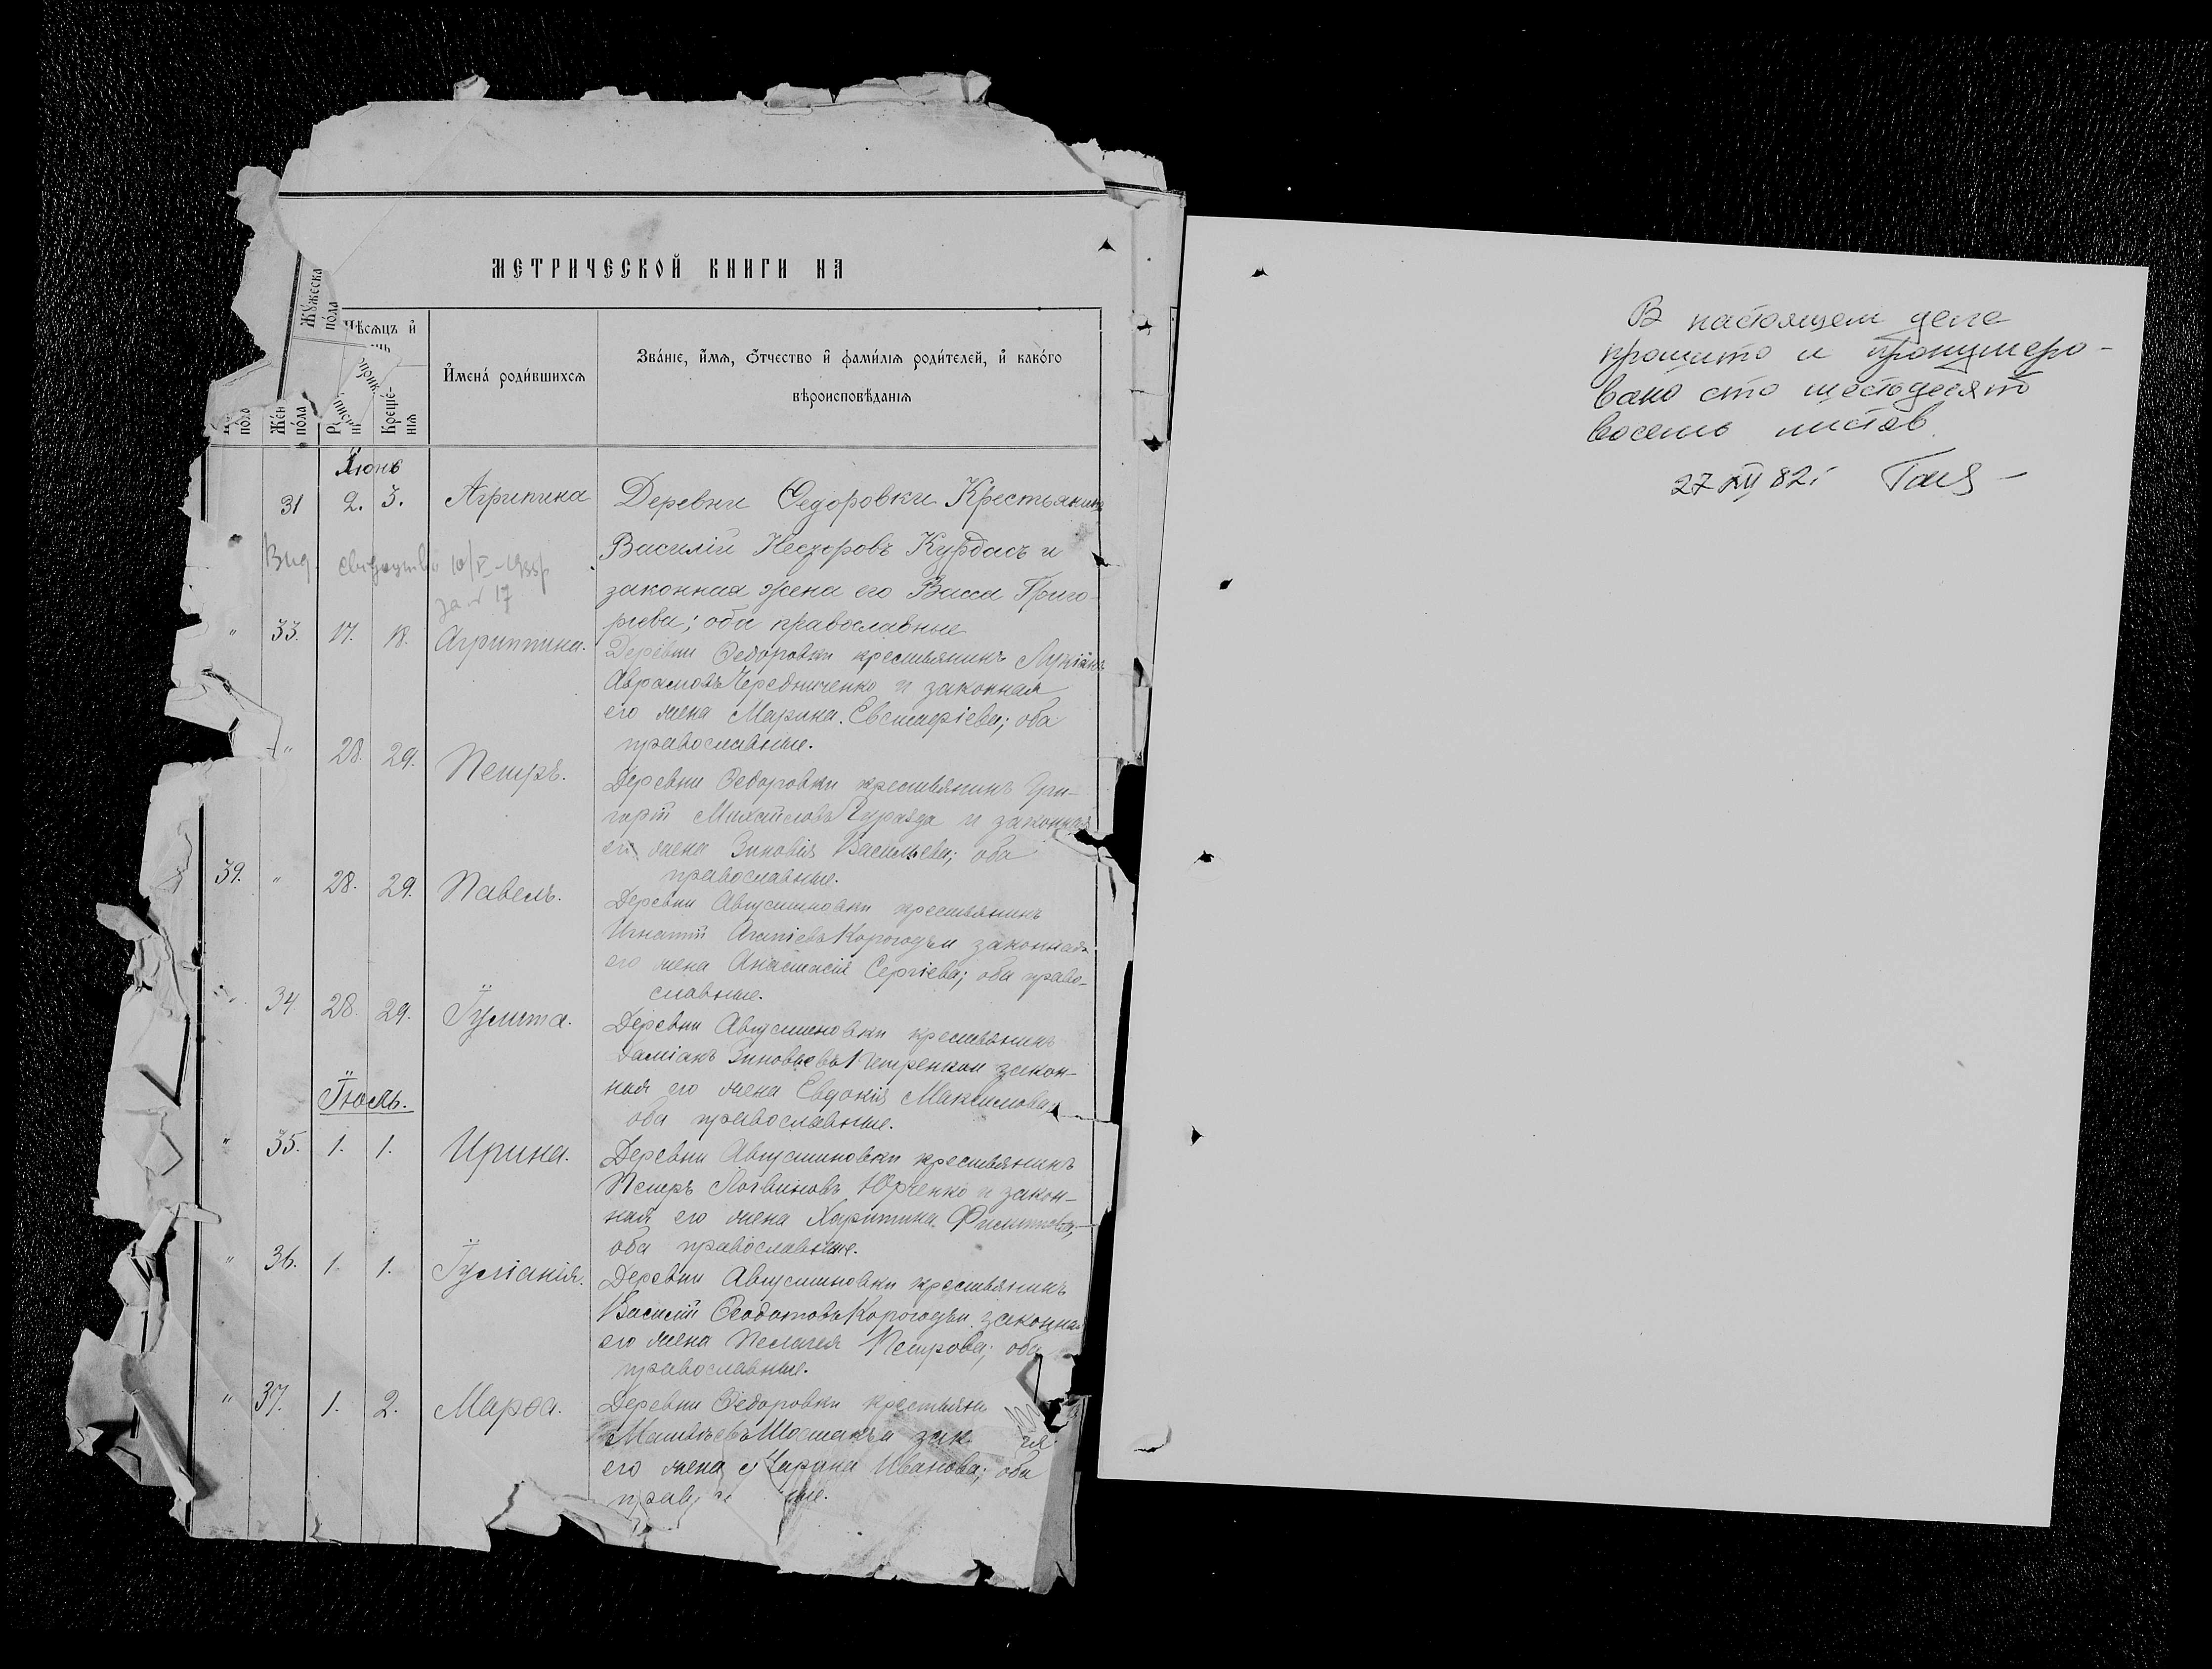 МЕТРИЧЕСКОЙ КНИГИ НА
Мѣсяцъ и
Имена родившихся
Званіе, имя, отчество и фамилія родителей, и какого
вѣроисповѣданія
Мужеска
пола
пола
Жен
пола
Креще-
нія
Іюнь
31 2. 3. Агрипина Деревни Ѳедоровки Крестьянинъ
Василій Несторовъ Курдасъ и
Выд. свидоцтво 10/V-1933р
за № 17
законная жена его Васса Григо-
рьева; оба православные
" 33. 17. 18. Агриппина. Деревни Ѳедоровки крестьянинъ Лукіанъ
Аврамовъ Чередниченко и законная
его жена Марина Евстафіева; оба
православные.
" 28. 29. Петръ. Деревни Ѳедоровки крестьянинъ Гри-
горій Михайловъ и законная
его жена Зиновія Васильева; оба
православные.
39. " 28. 29. Павелъ. Деревни Августиновки крестьянинъ
Игнатій Агапіевъ Корогодъ и законная
его жена Анастасія Сергіева; оба право-
славные.
" 34. 28. 29. Іулитта. Деревни Августиновки крестьянинъ
Даміанъ Зиновьевъ Петренко и закон-
ная его жена Евдокія Максимова
оба православные.
Іюль.
" 35. 1. 1. Ирина. Деревни Августиновки крестьянинъ
Петръ Логвиновъ Юрченко и закон-
ная его жена Харитина Филиппова;
оба православные.
" 36. 1. 1. Іуліанія. Деревни Августиновки крестьянинъ
Василій Ѳеодотовъ Корогодъ и законная
его жена Пелагея Петрова; оба
православные.
" 37. 1. 2. Марѳа. Деревни Ѳедоровки крестьянин
Матвѣевъ Шостакъ и зак ая
его жена Марина Иванова; оба
прав ные.
В настоящем деле
прошито и пронумеро-
вано сто шестьдесят
восемь листов
27 XII 82г